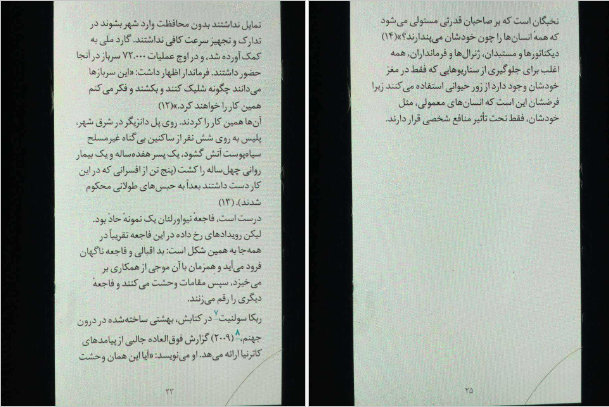 تمایل نداشتند بدون محافظت وارد شهر بشوند در
تدارک و تجهیز سرعت کافی نداشتند. گارد ملی به
کمک آورده شد، و در اوج عملیات ۷۲,۰۰۰ سرباز در آنجا
حضور داشتند. فرماندار اظهار داشت: «این سربازها
می‌دانند چگونه شلیک کنند و بکشند و فکر می‌کنم
همین کار را خواهند کرد.»(۱۲)
آن‌ها همین کار را کردند. روی پل دانزیگر در شرق شهر،
پلیس به روی شش نفر از ساکنین بی‌گناه غیرمسلح
سیاه‌پوست آتش گشود، یک پسر هفده‌ساله و یک بیمار
روانی چهل‌ساله را کشت (پنج تن از افسرانی که در این
کار دست داشتند بعداً به حبس‌های طولانی محکوم
شدند). (۱۳)
درست است، فاجعهٔ نیواورلئان یک نمونهٔ حاد بود.
لیکن رویدادهای رخ داده در این فاجعه تقریباً در
همه‌جا به همین شکل است: بد اقبالی و فاجعه ناگهان
فرود می‌آید و همزمان با آن موجی از همکاری بر
می‌خیزد، سپس مقامات وحشت می‌کنند و فاجعهٔ
دیگری را رقم می‌زنند.
ربکا سولنیت۷ در کتابش، بهشتی ساخته‌شده در درون
جهنم،۸ (۲۰۰۹) گزارش فوق‌العاده جالبی از پیامدهای
کاترنیا ارائه می‌هد. او می‌نویسد: «آیا این همان وحشت
۲۳
نخبگان است که بر صاحبان قدرتی مستولی می‌شود
که همهٔ انسان‌ها را چون خودشان می‌پندارند؟»(۱۴)
دیکتاتورها و مستبدان، ژنرال‌ها و فرمانداران، همه
اغلب برای جلوگیری از سناریوهایی که فقط در مغز
خودشان وجود دارد از زور حیوانی استفاده می‌کنند زیرا
فرضشان این است که انسان‌های معمولی، مثل
خودشان، فقط تحت تأثیر منافع شخصی قرار دارند.
۲۵